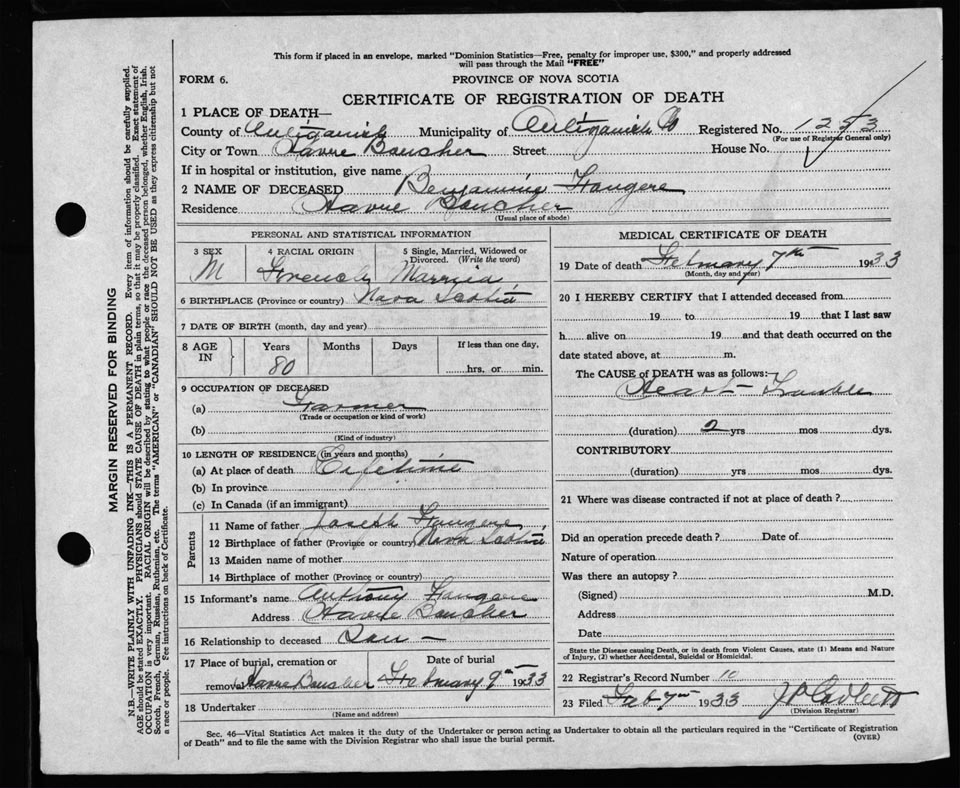 This form if placed in an envelope, marked "Dominion Statistics—Free, penalty for improper use, $300," and properly addressed
will pass through the Mail "FREE"
FORM 6.
PROVINCE OF NOVA SCOTIA
CERTIFICATE OF REGISTRATION OF DEATH
1 PLACE OF DEATH—
County of Antigonish Municipality of Antigonish Co Registered No. 1253
(For use of Registrar General only)
City or Town Havre Boucher Street House No.
If in hospital or institution, give name
2 NAME OF DECEASED Benjamine Fougere
Residence Havre Boucher
(Usual place of abode)
PERSONAL AND STATISTICAL INFORMATION
3 SEX 4 RACIAL ORIGIN 5 Single, Married, Widowed or
Divorced. (Write the word)
M French Married
6 BIRTHPLACE (Province or country) Nova Scotia
7 DATE OF BIRTH (month, day and year)
8 AGE IN Years Months Days If less than one day,
80 hrs. or min.
9 OCCUPATION OF DECEASED
(a) Farmer
(Trade or occupation or kind of work)
(b)
(Kind of industry)
10 LENGTH OF RESIDENCE (in years and months)
(a) At place of death Lifetime
(b) In province
(c) In Canada (if an immigrant)
Parents
11 Name of father Joseph Fougere
12 Birthplace of father (Province or country) Nova Scotia
13 Maiden name of mother
14 Birthplace of mother (Province or country)
15 Informant's name Anthony Fougere
Address Havre Boucher
16 Relationship to deceased Son —
17 Place of burial, cremation or Date of burial
removal Havre Boucher February 9th 1933
18 Undertaker
(Name and address)
MEDICAL CERTIFICATE OF DEATH
19 Date of death February 7th 1933
(Month, day and year)
20 I HEREBY CERTIFY that I attended deceased from
19 to 19 that I last saw
h alive on 19 and that death occurred on
date stated above, at m.
The CAUSE OF DEATH was as follows:
Heart - Trouble
(duration) 2 yrs mos dys.
CONTRIBUTORY
(duration) yrs mos dys.
21 Where was disease contracted if not at place of death ?
Did an operation precede death ? Date of
Nature of operation
Was there an autopsy ?
(Signed) M.D.
Address
Date
State the Disease causing Death, or in death from Violent Causes, state (1) Means and Nature
of Injury, (2) whether Accidental, Suicidal or Homicidal.
22 Registrar's Record Number 10
23 Filed Feb 7th 1933
(Division Registrar)
Sec. 46—Vital Statistics Act makes it the duty of the Undertaker or person acting as Undertaker to obtain all the particulars required in the "Certificate of Registration
of Death" and to file the same with the Division Registrar who shall issue the burial permit.
(OVER)
MARGIN RESERVED FOR BINDING
N.B.—WRITE PLAINLY WITH UNFADING INK—THIS IS A PERMANENT RECORD. Every item of information should be carefully supplied.
AGE should be stated EXACTLY. PHYSICIANS should STATE CAUSE OF DEATH in plain terms, so that it may be properly classified. Exact statement of
OCCUPATION is very important. RACIAL ORIGIN will be described by stating to what people or race the deceased person belonged, whether English, Irish,
Scotch, French, German, Russian, Ruthenian, etc. The terms "AMERICAN" or "CANADIAN" SHOULD NOT BE USED as they express citizenship but not
a race or people. See instructions on back of Certificate.